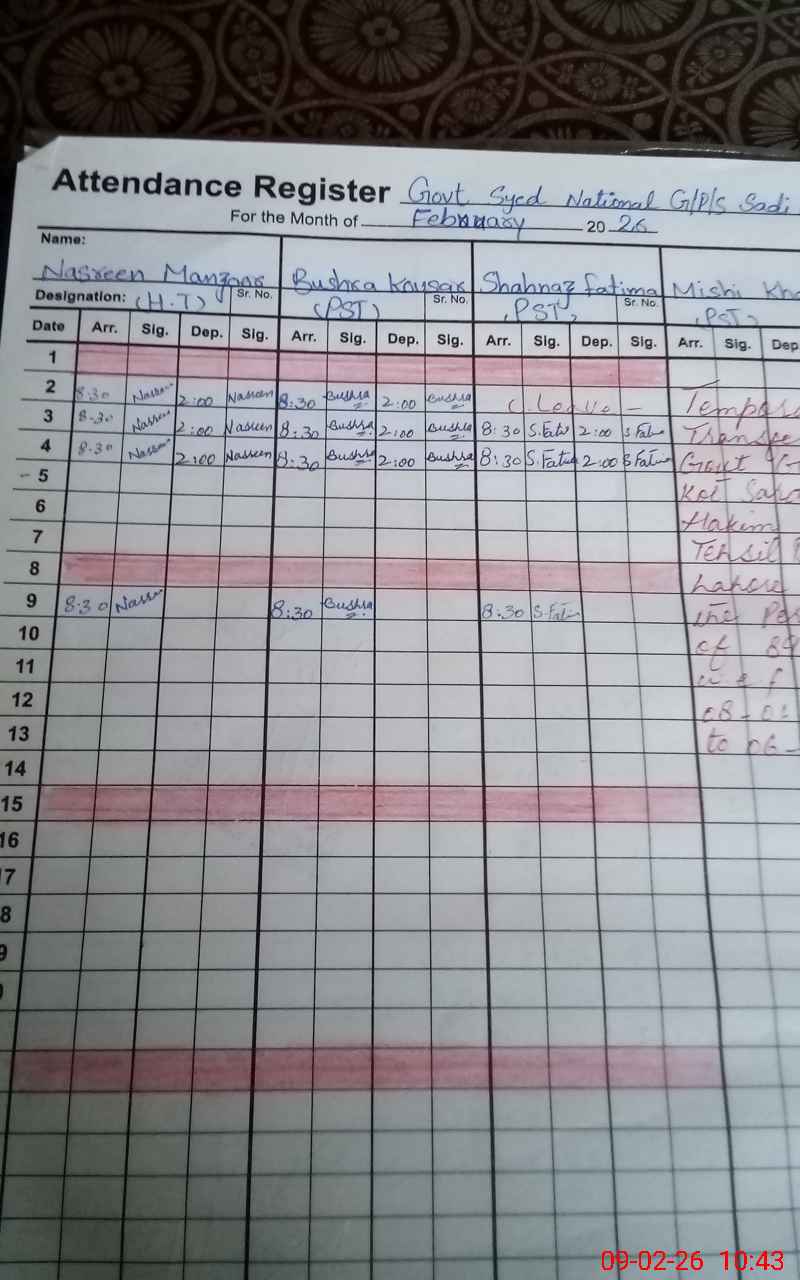 Attendance Register Govt Syed National G/P/S Sadi
For the Month of February 20 26
Name:
Nasreen Manzoor Bushra Kausar Shahnaz Fatima Mishi Kha
Designation: (H.T) Sr. No. (PST) Sr. No. (PST) Sr. No. (PST)
Date Arr. Sig. Dep. Sig. Arr. Sig. Dep. Sig. Arr. Sig. Dep. Sig. Arr. Sig. Dep
1
2 8:30 Nasreen 2:00 Nasreen 8:30 Bushra 2:00 Bushra C. Leave - Tempora
3 8:30 Nasreen 2:00 Nasreen 8:30 Bushra 2:00 Bushra 8:30 S.Fati 2:00 S.Fati Transfe
4 8:30 Nasreen 2:00 Nasreen 8:30 Bushra 2:00 Bushra 8:30 S.Fati 2:00 S.Fati Govt
5 Kot
6 Hakim
7 Tehsil
8 Lahore
9 8:30 Nasr 8:30 Bushra 8:30 S.Fati the Per
10 of 89
11 w e f
12 08-01
13 to 06-
14
15
16
7
8
9
09-02-26 10:43